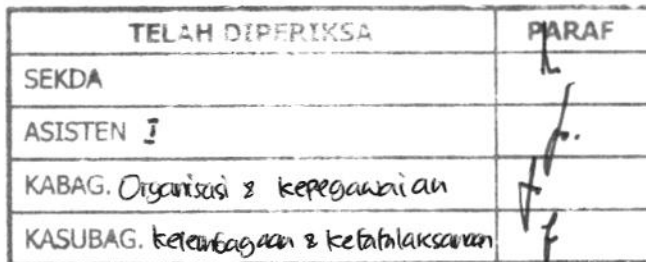 TELAH DIPERIKSA PARAF
SEKDA
ASISTEN I
KABAG. Organisasi & kepegawaian
KASUBAG. kelembagaan & ketatalaksanaan